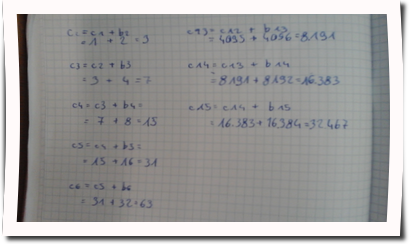 c₂ = c1 + b2
= 1 + 2 = 3
c3 = c2 + b3
= 3 + 4 = 7
c4 = c3 + b4 =
= 7 + 8 = 15
c5 = c4 + b5 =
= 15 + 16 = 31
c6 = c5 + b6
= 31 + 32 = 63
c13 = c12 + b13
= 4095 + 4096 = 8191
c14 = c13 + b14
= 8191 + 8192 = 16.383
c15 = c14 + b15
= 16.383 + 16384 = 32467